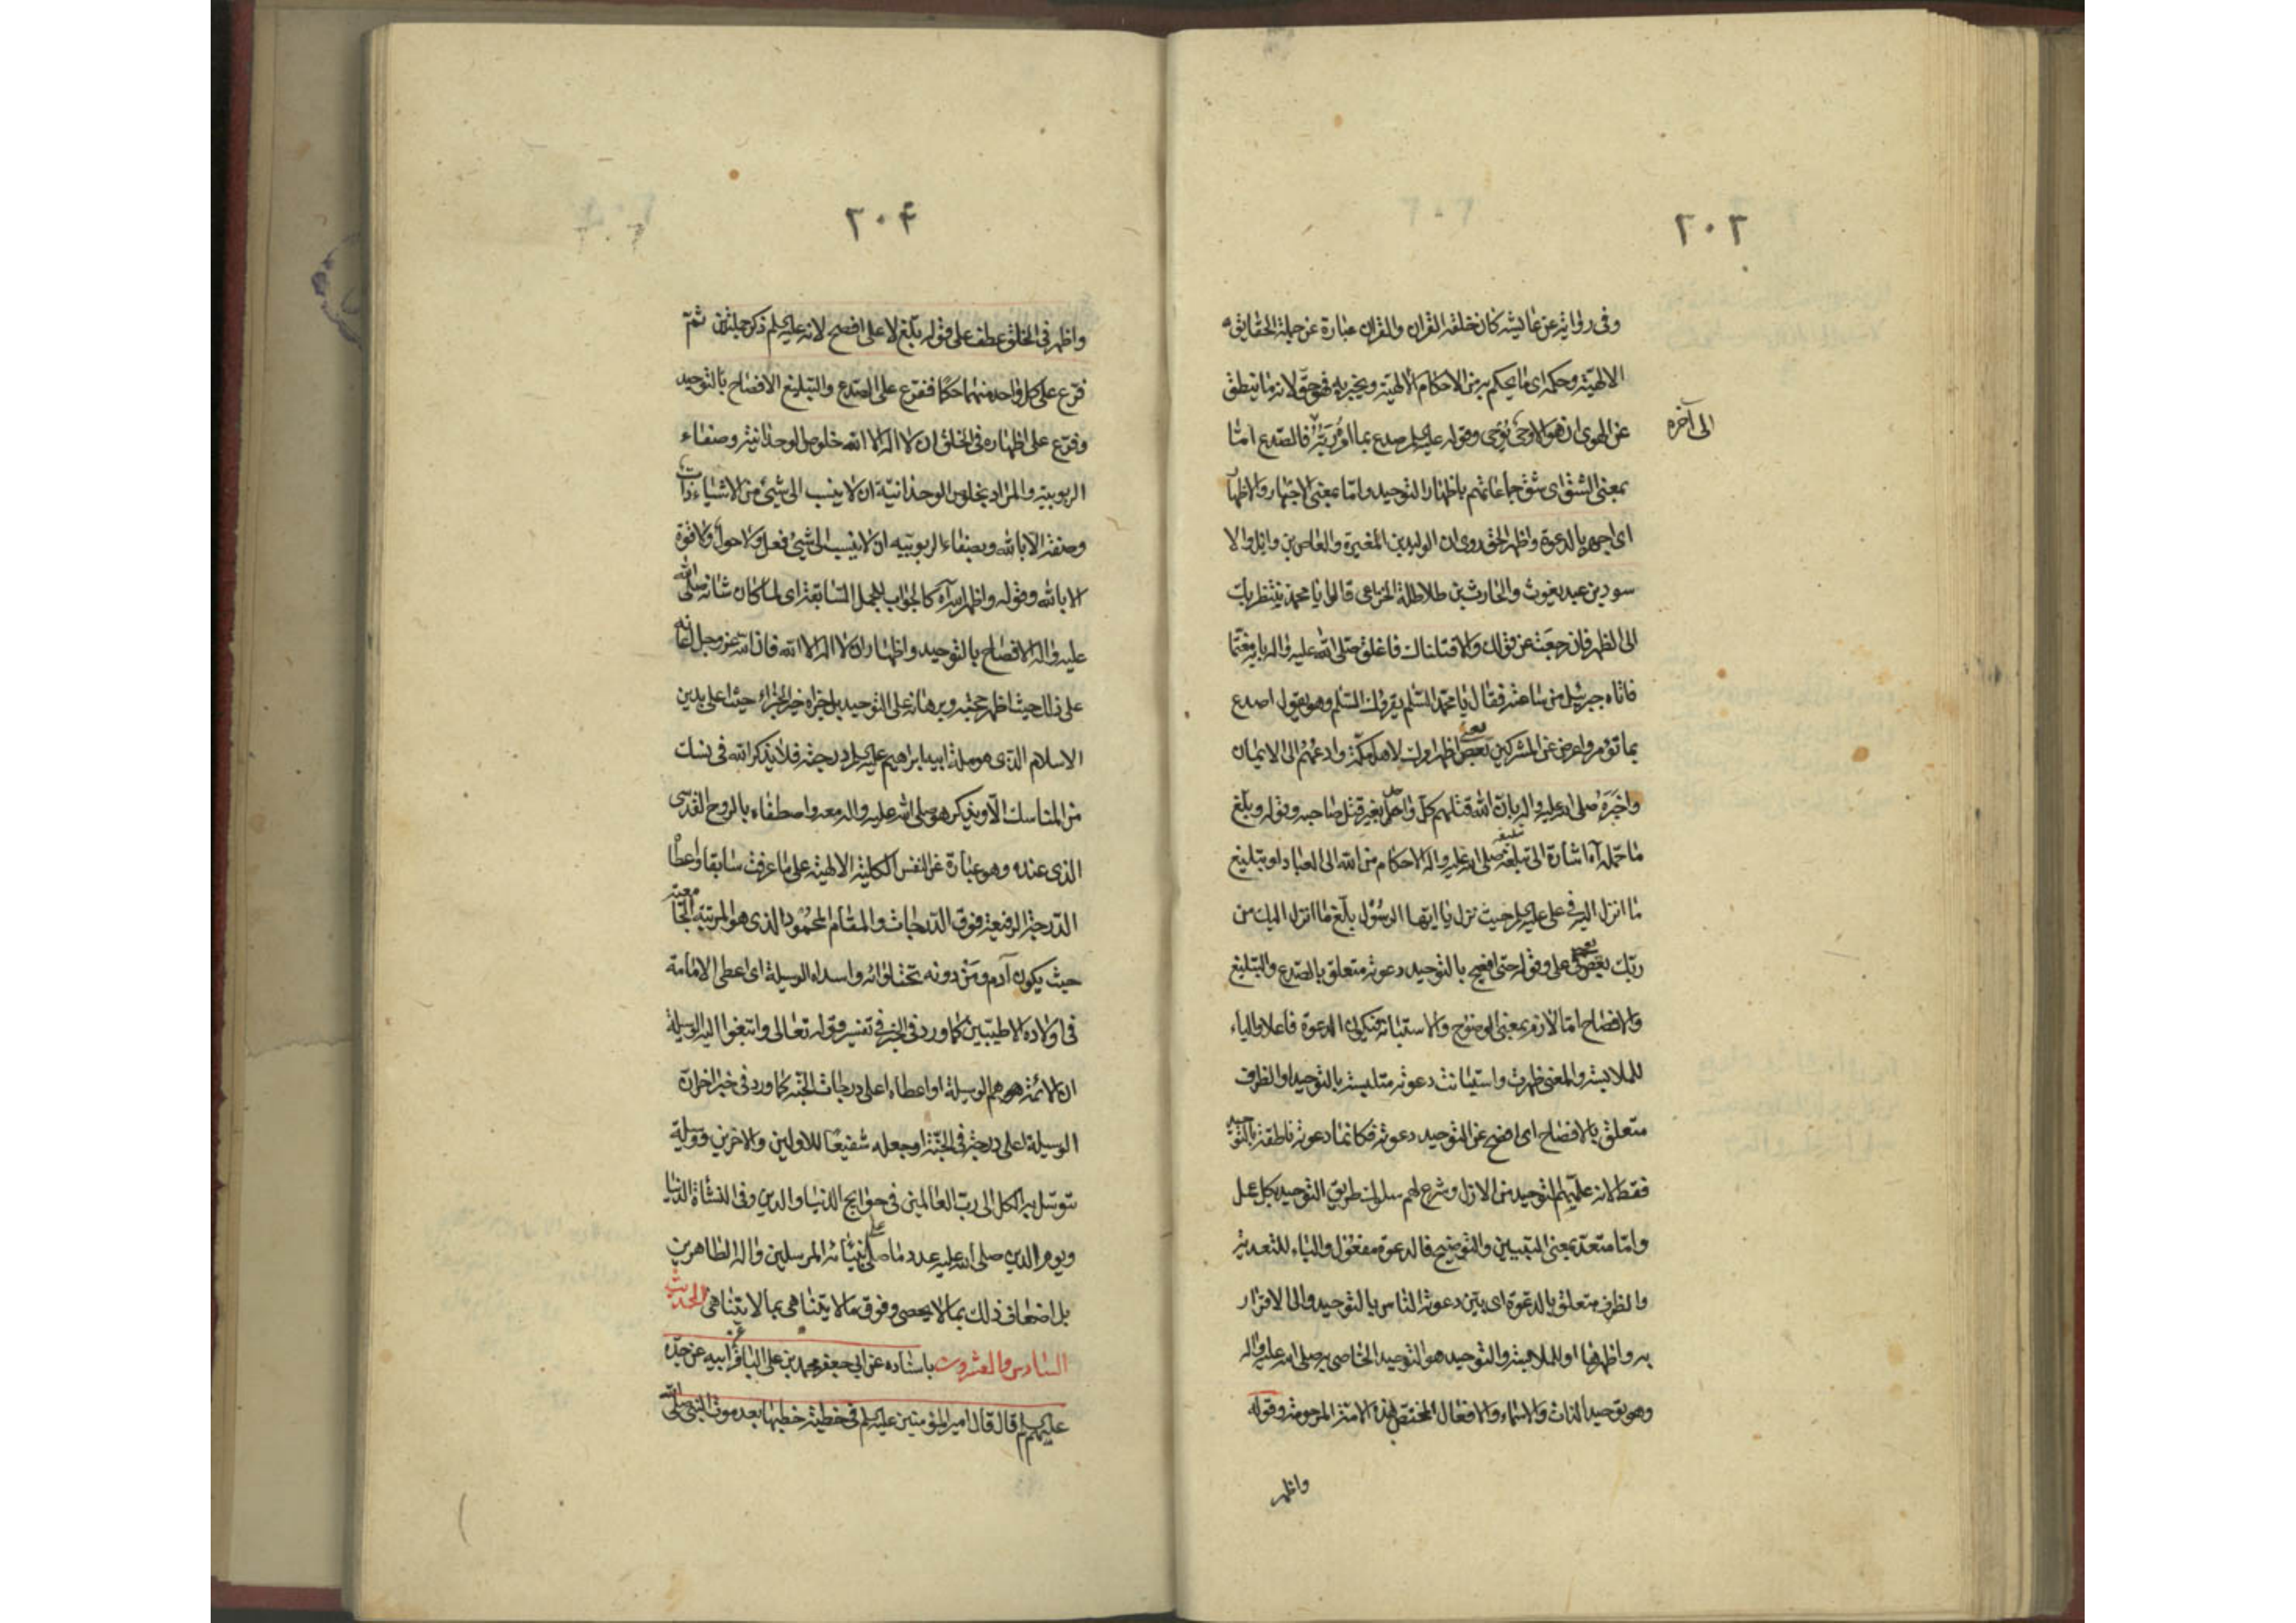 ٢٠٣
وفى رواية عن عايشة كان خلقه القران والقران عبارة عن جملة الحقايق
الالهية وحكمه اى ما يحكم به من الاحكام الالهية ويخبر به فهو حق لانه ما ينطق
عن الهوى ان هو الا وحى يوحى وقوله عليه السلم صدع بما اؤمر به فالصدع امّا
الى آخره
بمعنى الشق اى شق جماعاتهم باظهار التوحيد وامّا بمعنى الاجهار والاظهار
اى اجهر بالدعوة واظهر الحق روى ان الوليد بن المغيرة والعاص بن وايل والا
سود بن عبد يغوث والحارث بن طلاطلة الخزاعى قالوا يا محمد ننتظر بك
الى الظهر فان رجعت عن قولك والا قتلناك فاغلق صلى الله عليه واله بابه مغتما
فاتاه جبرئيل من ساعته فقال يا محمد السلم يقرؤك السلم وهو يقول اصدع
بما تؤمر واعرض عن المشركين يعنى اظهر امرك لاهل مكة وادعهم الى الايمان
واخبره صلى الله عليه واله بان الله قتلهم كل واحد بغير قتل صاحبه وقوله وبلّغ
ما حمله آه اشارة الى تبليغه صلى الله عليه واله الاحكام من الله الى العباد او تبليغ
ما انزل اليه فى على عليه السلم حيث نزل يا ايها الرسول بلّغ ما انزل اليك من
ربك يعنى فى على وقوله حتى افصح بالتوحيد دعوته متعلق بالصدع والتبليغ
والافصاح امّا لازم بمعنى الوضوح والاستبانة فتكون الدعوة فاعلا والباء
للملابسة والمعنى ظهرت واستبانت دعوته متلبسة بالتوحيد او الظرف
متعلق بالافصاح اى افصح عن التوحيد دعوته فكانما دعوته ناطقة بالتوحيد
فقط لانه علّمهم التوحيد من الازل وشرع لهم سلوك طريق التوحيد بكل عمل
وامّا متعد بمعنى التبيين والتوضيح فالدعوة مفعول والباء للتعدية
والظرف متعلق بالدعوة اى بيّن دعوته الناس بالتوحيد والى الاقرار
به واظهرها او للملابسة والتوحيد هو التوحيد الخاصى به صلى الله عليه واله
وهو توحيد الذات والاسماء والافعال المختص بهذه الامة المرحومة وقوله
واظهر
٢٠۴
واظهر فى الخلق عطف على قوله بلّغ لا على افصح لانه عليه السلم ذكر جملتين ثمّ
فرّع على كل واحد منهما حكما ففرّع على الصدع والتبليغ الافصاح بالتوحيد
وفرّع على اظهاره فى الخلق ان لا اله الا الله خلوص الوحدانية وصفاء
الربوبية والمراد بخلوص الوحدانية ان لا ينسب الى شىء من الاشياء ذات
وصفة الا بالله وبصفاء الربوبية ان لا ينسب الى شىء فعل ولا حول ولا قوة
الا بالله وقوله واظهر الله آه كالجواب للجمل السابقة اى لما كان شانه صلى الله
عليه واله الافصاح بالتوحيد واظهار ان لا اله الا الله فان الله عز وجل اعانه
على ذلك حيث اظهر حجته وبرهانه على التوحيد بل اجزاه خير الجزاء حيث اعلى بدين
الاسلام الذى هو ملة ابيه ابراهيم عليه السلم درجته فلا يذكر الله فى نسك
من المناسك الا ويذكر هو صلى الله عليه واله معه واصطفاه بالروح القدسى
الذى عنده وهو عبارة عن النفس الكلية الالهية على ما عرفت سابقا واعطاه
الدرجة الرفيعة فوق الدرجات والمقام المحمود الذى هو المرتبة الجامعة
حيث يكون آدم ومن دونه تحت لوائه واسداه الوسيلة اى اعطى الامامة
فى اولاده الاطيبين كما ورد فى الخبر فى تفسير قوله تعالى وابتغوا اليه الوسيلة
ان الائمة هم الوسيلة او اعطاه اعلى درجات الجنة كما ورد فى خبر اخر ان
الوسيلة اعلى درجة فى الجنة او جعله شفيعا للاولين والاخرين ووسيلة
يتوسل به الكل الى رب العالمين فى حوايج الدنيا والدين وفى النشاة الدنيا
ويوم الدين صلى الله عليه عدد ما صلى على انبيائه المرسلين واله الطاهرين
بل اضعاف ذلك بما لا يحصى وفوق ما لا يتناهى بما لا يتناهى الحديث
السادس والعشرون باسناده عن ابى جعفر محمد بن على الباقر عن ابيه عن جده
عليهم السلم قال قال امير المؤمنين عليه السلم فى خطبة خطبها بعد موت النبى صلى الله